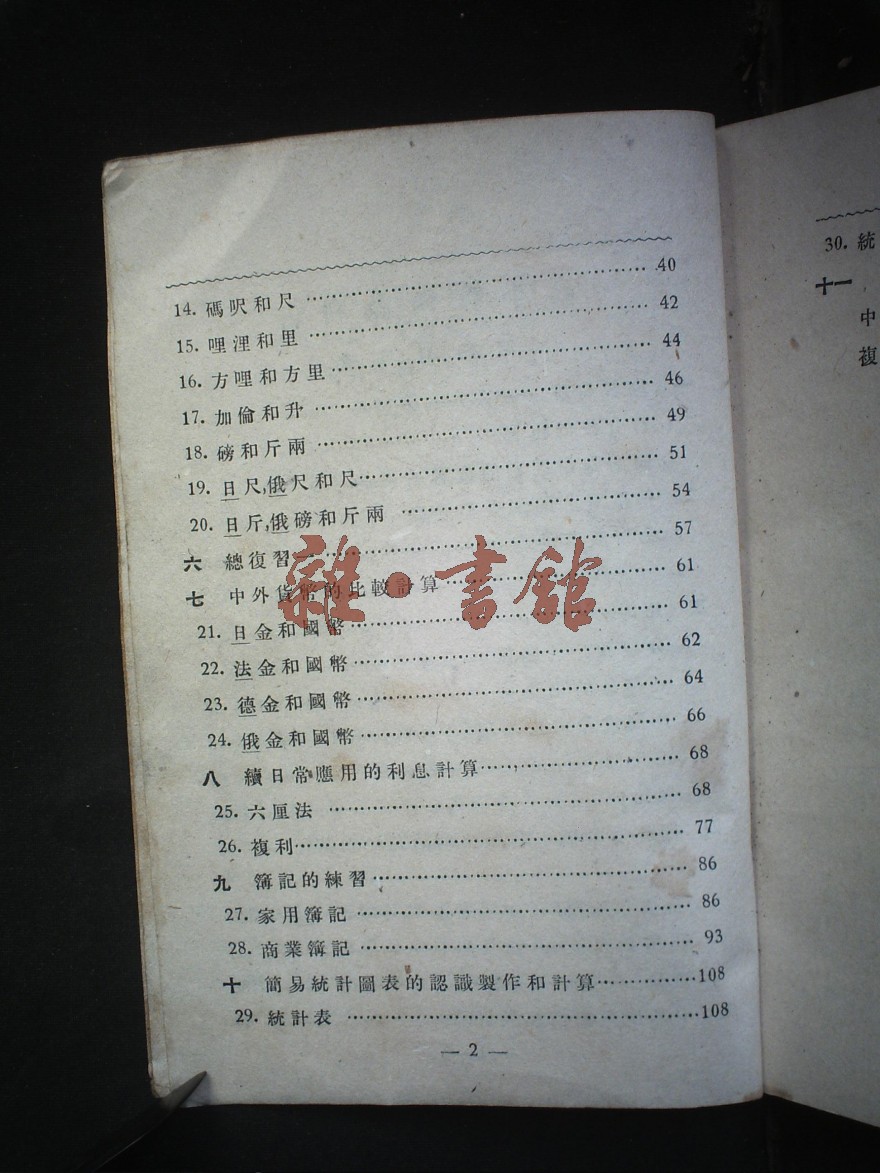 14. 碼呎和尺 40
15. 哩浬和里 42
16. 方哩和方里 44
17. 加倫和升 46
18. 磅和斤兩 49
19. 日尺,俄尺和尺 51
20. 日斤,俄磅和斤兩 54
六 總復習一 57
七 中外貨幣的比較計算 61
21. 日金和國幣 61
22. 法金和國幣 62
23. 德金和國幣 64
24. 俄金和國幣 66
八 續日常應用的利息計算 68
25. 六厘法 68
26. 複利 77
九 簿記的練習 86
27. 家用簿記 86
28. 商業簿記 93
十 簡易統計圖表的認識製作和計算 108
29. 統計表 108
— 2 —
雜·書館
30. 統
十一
中
複